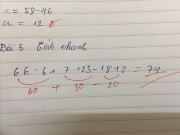 a = 58 - 46
a = 12
Bài 3 Tính nhanh
66 - 6 + 7 + 23 - 18 - 2 = 74
60 + 30 - 20